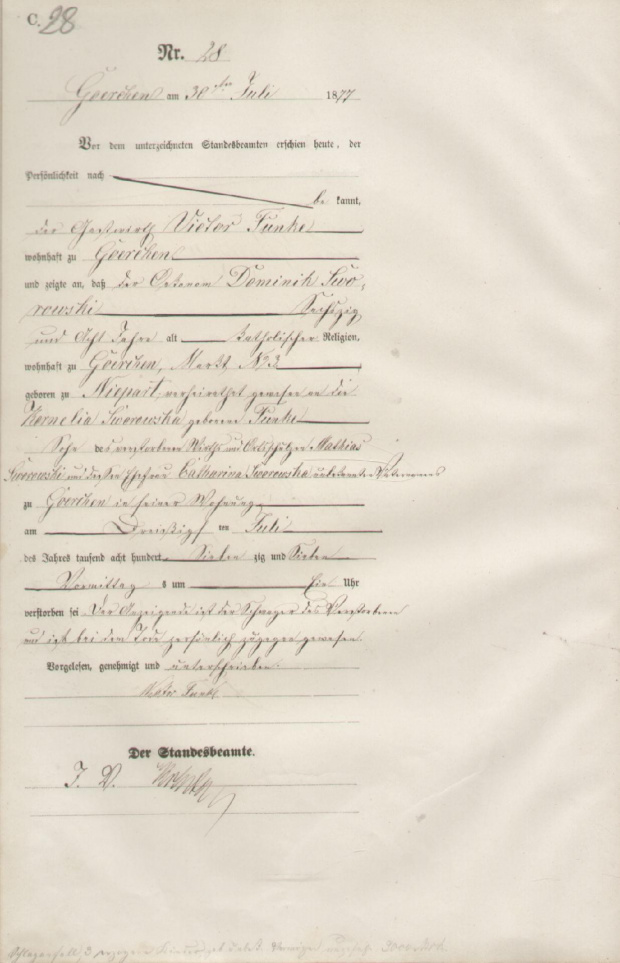 C. 28
Nr. 28
Goerchen am 30 ten Juli 1877
Vor dem unterzeichneten Standesbeamten erschien heute, der
Persönlichkeit nach
be kannt,
der Gastwirth Victor Funke
wohnhaft zu Goerchen
und zeigte an, daß der Oekonom Dominik Swo-
rowski Sechszig
und Acht Jahre alt katholischer Religion,
wohnhaft zu Goerchen, Markt No 3
geboren zu Niepart, verheirathet gewesen an die
Kornelia Sworowska geborene Funke
Sohn des verstorbenen Wirths und Ortsschulzen Mathias
Sworowski und dessen Ehefrau Catharina Sworowska unbekannten Vaternamens
zu Goerchen in seiner Wohnung
am Dreißigsten Juli
des Jahres tausend acht hundert Sieben zig und Sieben
Vormittag s um Ein Uhr
verstorben sei. Der Anzeigende ist der Schwager des Verstorbenen
und ist bei dem Tode persönlich zugegen gewesen.
Vorgelesen, genehmigt und unterschrieben
Victor Funke
Der Standesbeamte.
I. V.